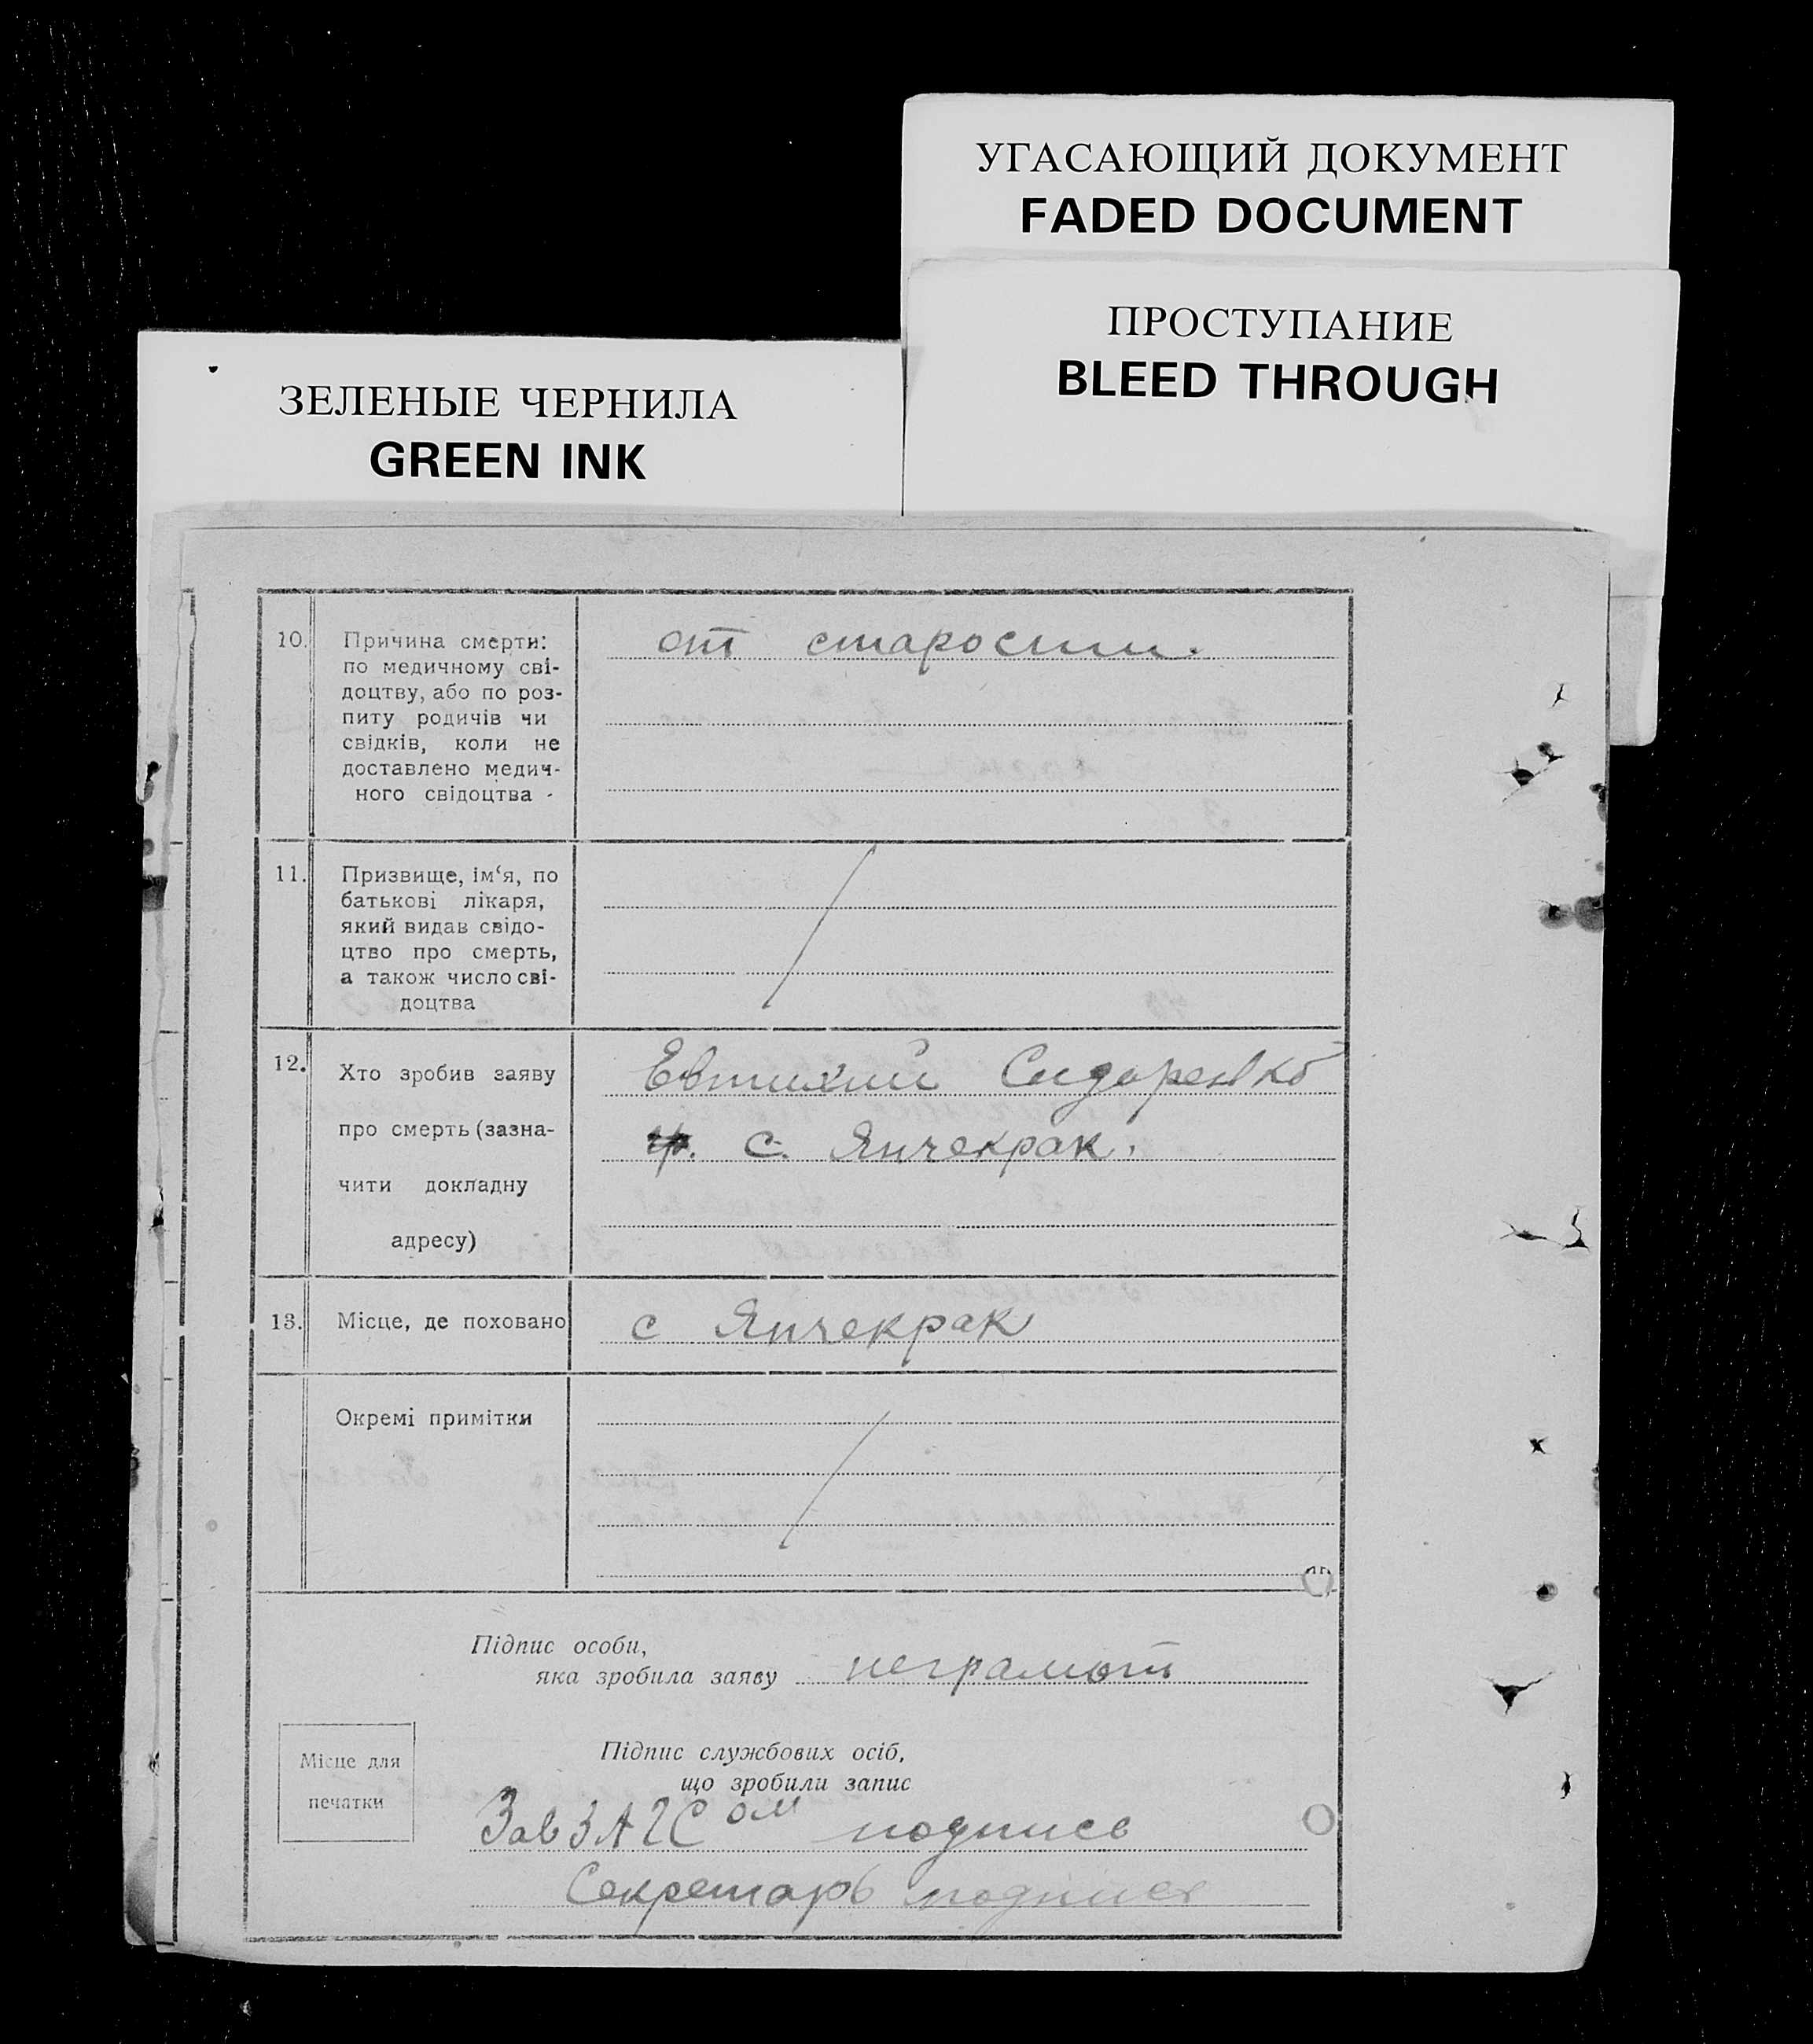 УГАСАЮЩИЙ ДОКУМЕНТ
FADED DOCUMENT
ПРОСТУПАНИЕ
BLEED THROUGH
ЗЕЛЕНЫЕ ЧЕРНИЛА
GREEN INK
10. Причина смерти: от старости.
по медичному сві-
доцтву, або по роз-
питу родичів чи
свідків, коли не
доставлено медич-
ного свідоцтва -
11. Призвище, ім‘я, по
батькові лікаря,
який видав свідо-
цтво про смерть,
а також число сві-
доцтва
12. Хто зробив заяву Евтихий Сидоренко
про смерть (зазна- с. Янчекрак.
чити докладну
адресу)
13. Місце, де поховано с Янчекрак
Окремі примітки
Підпис особи,
яка зробила заяву неграмот
Місце для
печатки
Підпис службових осіб,
що зробили запис
Зав ЗАГСом подпись
Секретарь подпись